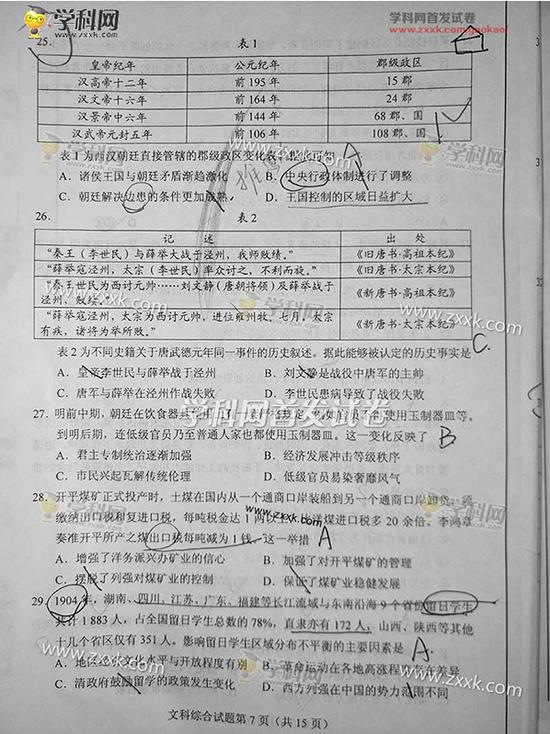 学科网
WWW.ZXXK.COM
学科网首发试卷
www.zxxk.com/gaokao/
25. 表1
皇帝纪年 公元纪年 郡级政区
汉高帝十二年 前195年 15郡
汉文帝十六年 前164年 24郡
汉景帝中六年 前144年 68郡、国
汉武帝元封五年 前106年 108郡、国
表1为西汉朝廷直接管辖的郡级政区变化表。据此可知 A
A. 诸侯王国与朝廷矛盾渐趋激化 B. 中央行政体制进行了调整
C. 朝廷解决边患的条件更加成熟 D. 王国控制的区域日益扩大
26. 表2
记 述 出 处
“秦王（李世民）与薛举大战于泾州，我师败绩。” 《旧唐书·高祖本纪》
“薛举寇泾州，太宗（李世民）率众讨之，不利而旋。” 《旧唐书·太宗本纪》
“秦王世民为西讨元帅……刘文静（唐朝将领）及薛举战于
泾州，败绩。” 《新唐书·高祖本纪》
“薛举寇泾州，太宗为西讨元帅，进位雍州牧。七月，太宗
有疾，诸将为举所败。” 《新唐书·太宗本纪》
C.
表2为不同史籍关于唐武德元年同一事件的历史叙述。据此能够被认定的历史事实是
A. 皇帝李世民与薛举战于泾州 B. 刘文静是战役中唐军的主帅
C. 唐军与薛举在泾州作战失败 D. 李世民患病导致了战役失败
27. 明前中期，朝廷在饮食器具使用上 使用玉制器皿等。
到明后期，连低级官员乃至普通人家也都使用玉制器皿。这一变化反映了 B
A. 君主专制统治逐渐加强 B. 经济发展冲击等级秩序
C. 市民兴起瓦解传统伦理 D. 低级官员易染奢靡风气
28. 开平煤矿正式投产时，土煤在国内从一个通商口岸装船到另一个通商口岸卸货，须
缴纳出口税和复进口税，每吨税金达1两 洋煤进口税多20余倍。李鸿章
奏准开平所产之煤出口税每吨减为1钱。这一举措 A
A. 增强了洋务派兴办矿业的信心 B. 加强了对开平煤矿的管理
C. 摆脱了列强对煤矿业的控制 D. 保证了煤矿业稳健发展
29. 1904年，湖南、四川、江苏、广东、福建等长江流域与东南沿海9个省份留日学生
共计1883人，占全国留日学生总数的78%，直隶亦有172人，山西、陕西等其他
十几个省区仅有351人。影响留日学生区域分布不平衡的主要因素是 A.
A. 地区经济文化水平与开放程度有别 B. 革命运动在各地高涨程度存在差异
C. 清政府鼓励留学的政策发生变化 D. 西方列强在中国的势力范围不同
文科综合试题第7页（共15页）